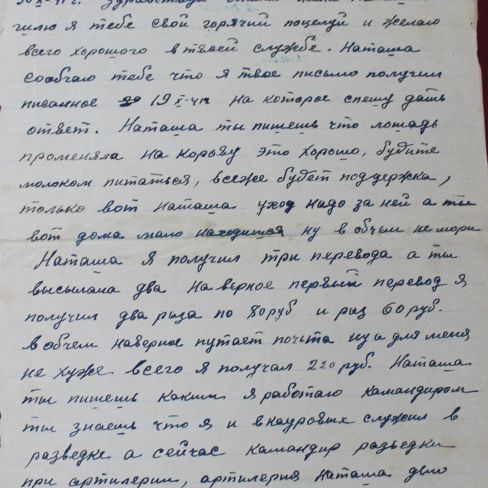 Здравствуй
шлю я тебе свой горячий поцелуй и желаю
всего хорошого в твоей службе. Наташа
сообчаю тебе что я твое письмо получил
писанное 19 X-41 на которое спешу дать
ответ. Наташа ты пишешь что лошадь
променяла на корову это хорошо, будите
молоком питаться, всеже будет поддержка,
только вот Наташа уход надо за ней а ты
вот дома мало находишся ну в обчим не мори
Наташа я получил три перевода а ты
высылала два на верное первый перевод я
получил два раза по 80 руб и раз 60 руб.
в обчем наверное путает почьта ну и для меня
не хуже всего я получал 220 руб. Наташа
ты пишешь каким я работаю командиром
ты знаешь что я и в кадровых служил в
разведке а сейчас командир разведки
при артилерии, артилерия Наташа дело